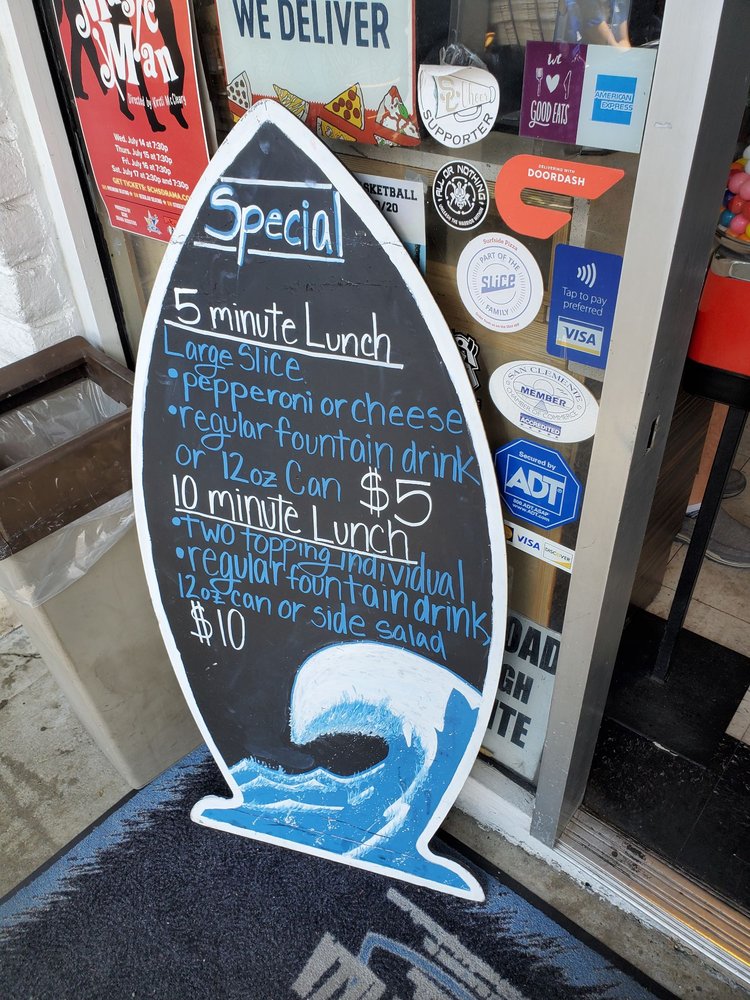 Music
Man
Directed by Kirsti McCleary
Wed. July 14 at 7:30p
Thurs. July 15 at 7:30p
Fri. July 16 at 7:30p
Sat. July 17 at 2:30p and 7:30p
GET TICKETS: SCHSDRAMA.CO
WE DELIVER
SC Cheer
SUPPORTER
We
GOOD EATS
AMERICAN
EXPRESS
ALL OR NOTHING
BASKETBALL
/20
DELIVERING WITH
DOORDASH
Surfside Pizza
PART OF THE
SLiCE
FAMILY
Tap to pay
preferred
VISA
SAN CLEMENTE
MEMBER
CHAMBER OF COMMERCE
ACCREDITED
Secured by
ADT
800.ADT.ASAP
www.ADT.com
VISA
DISCOVER
OAD
GH
TE
Special
5 minute Lunch
Large Slice.
•pepperoni or cheese
•regular fountain drink
or 12oz Can $5
10 minute Lunch
•two topping individual
•regular fountain drink,
12oz can or side salad
$10